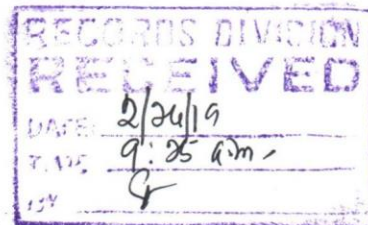 RECORDS DIVISION
RECEIVED
DATE:
TIME 9:25 a.m.
BY